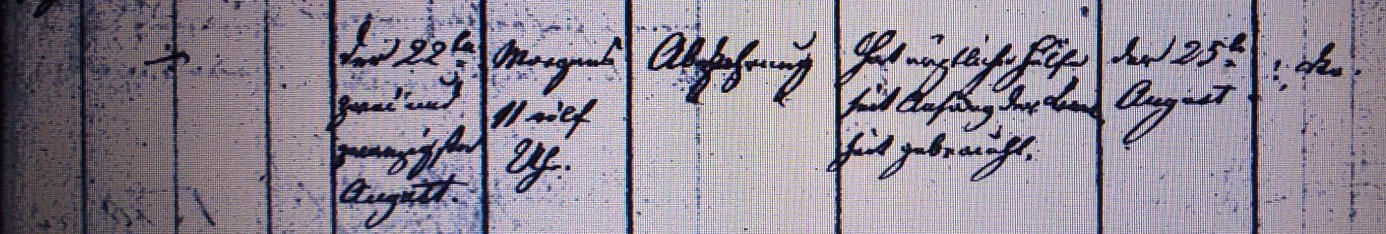 den 22ten
zwei und
zwanzigsten
August.
Morgens
11 eilf
Uhr.
Abzehrung
Hat ärztliche Hülfe
seit Anfang der Krank
heit gebraucht.
den 25t
August